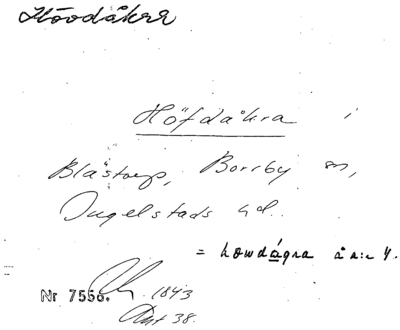 Hövdåkra
Höfdåkra i
Blästorp, Borrby sn,
Ingelstads hd.
= howdágra å n:r 4.
Nr 7556. 1843
Akt 38.